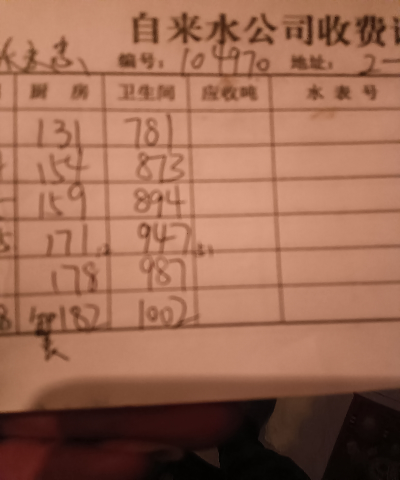 自来水公司收费
编号：104970 地址：2-
厨 房 卫生间 应收吨 水 表 号
131 781
154 873
159 894
171 947
178 987
182 1002